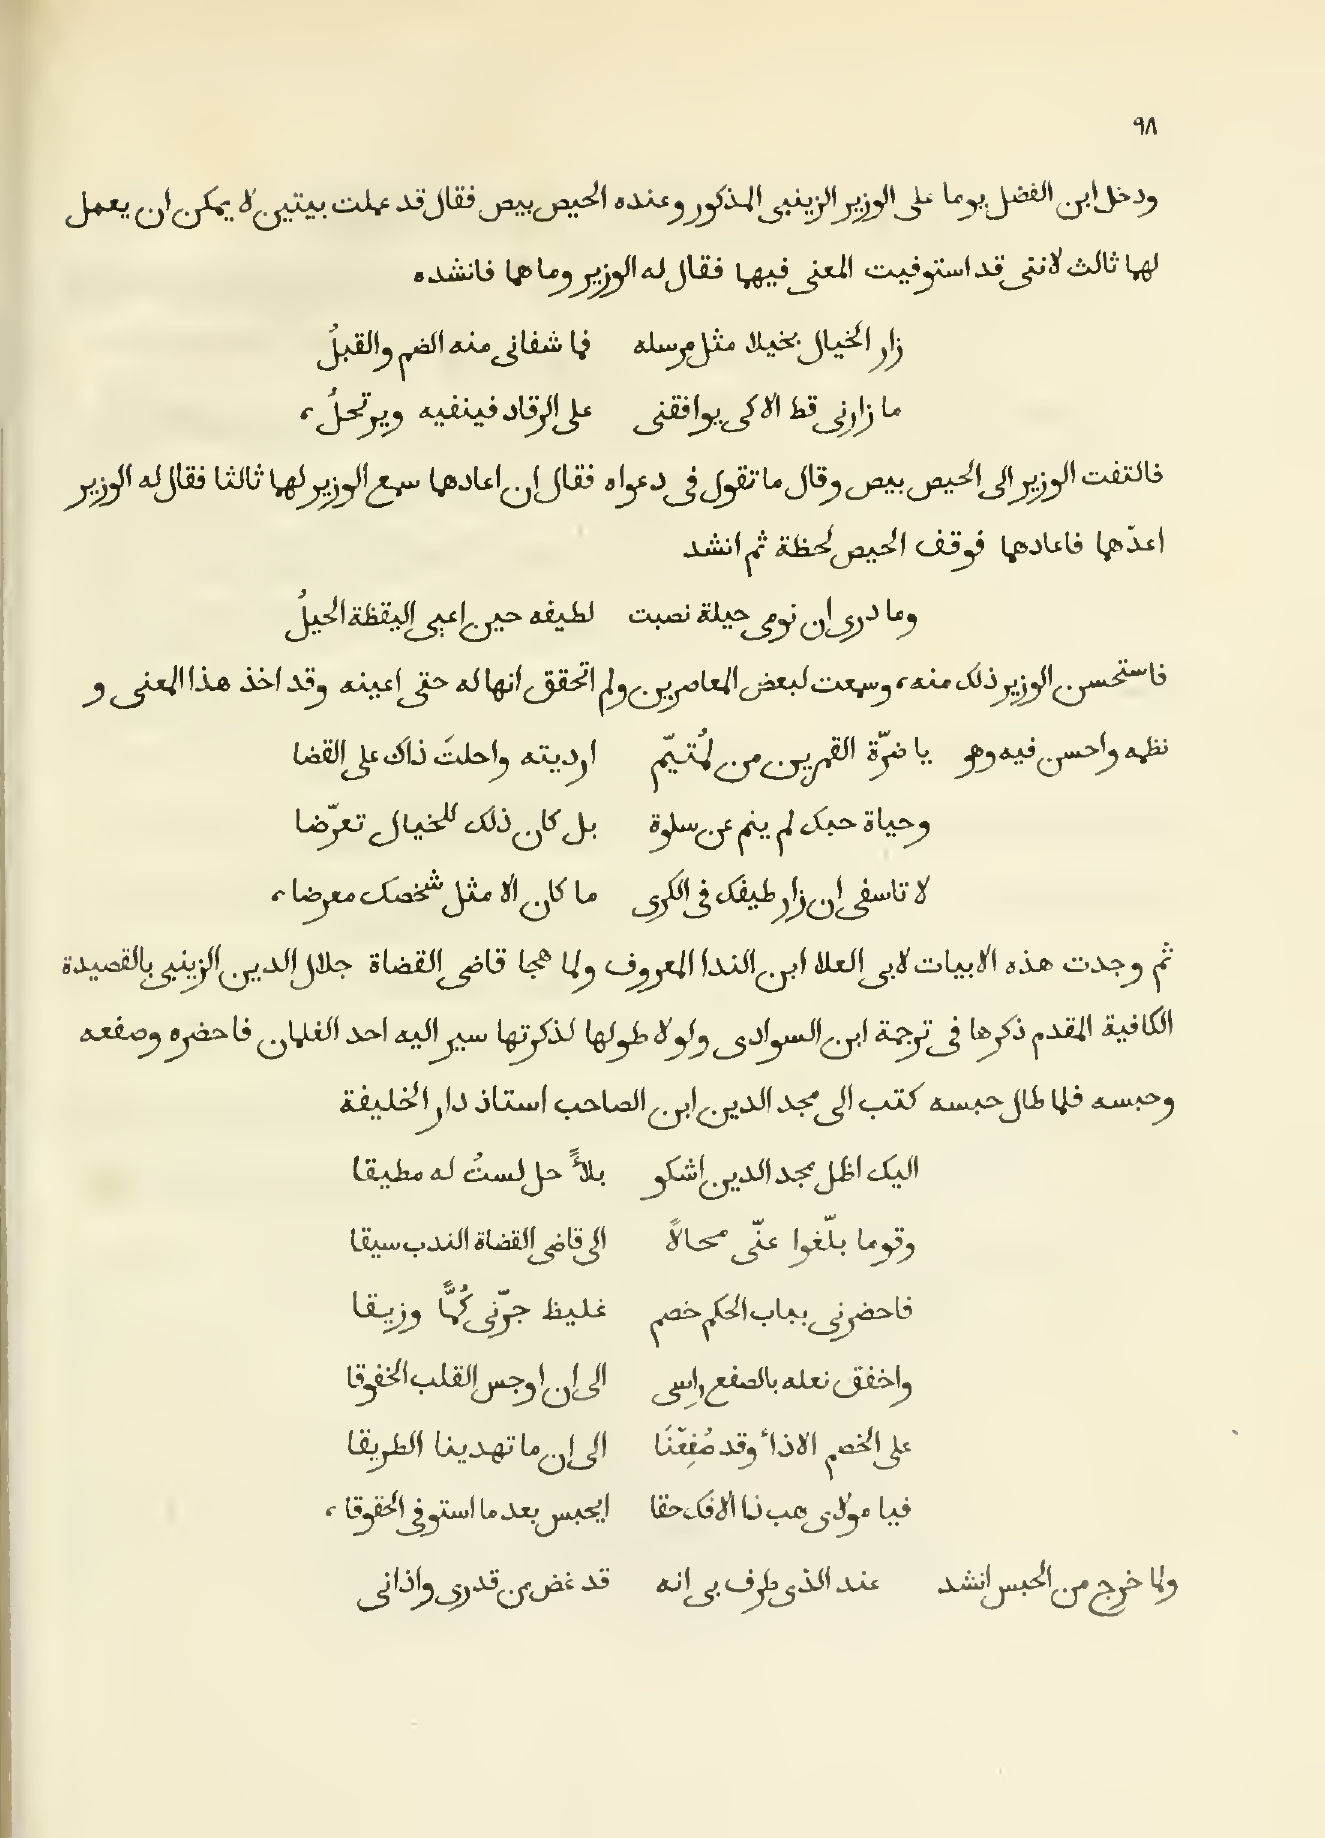 ٩٨
ودخل ابن الفضل يوما على الوزير الزينبى المذكور وعنده الحيص بيص فقال قد عملت بيتين لا يمكن ان يعمل
لهما ثالث لاننى قد استوفيت المعنى فيهما فقال له الوزير وما هما فانشده
زار الخيال بخيلا مثل مرسله فما شفانى منه الضم والقبلُ
ما زارنى قط الا كى يوافقنى على الرقاد فينفيه ويرتحلُ،
فالتفت الوزير الى الحيص بيص وقال ما تقول فى دعواه فقال ان اعادهما سمع الوزير لهما ثالثا فقال له الوزير
اعدّهما فاعادهما فوقف الحيص لحظة ثم انشد
وما درى ان نومى حيلة نصبت لطيفه حين اعيى اليقظة الحيلُ
فاستحسن الوزير ذلك منه، وسمعت لبعض المعاصرين ولم اتحقق انها له حتى اعينه وقد اخذ هذا المعنى و
نظمه واحسن فيه وهو يا ضرّة القمرين من لمُتيّم ارديته واحلتَ ذاك على القضا
وحياة حبك لم ينم عن سلوة بل كان ذلك للخيال تعرّضا
لا تاسفى ان زار طيفك فى الكرى ما كان الا مثل شخصك معرضا،
ثم وجدت هذه الابيات لابى العلا ابن الندا المعروف ولما هجا قاضى القضاة جلال الدين الزينبى بالقصيدة
الكافية المقدم ذكرها فى ترجمة ابن السوادى ولولا طولها لذكرتها سير اليه احد الغلمان فاحضره وصفعه
وحبسه فلما طال حبسه كتب الى مجد الدين ابن الصاحب استاذ دار الخليفة
اليك اظل مجد الدين اشكو بلاءً حل لستُ له مطيقا
وقوما بلّغوا عنّى محالاً الى قاضى القضاة الندب سيقا
فاحضرنى بباب الحكم خصم غليظ جرّنى كُمًّا وزيقا
واخفق نعله بالصفع راسى الى ان اوجس القلب الخفوقا
على الخصم الاذاء وقد صُفِعْنَا الى ان ما تهدينا الطريقا
فيا مولاى هب ذا الافك حقا ايحبس بعد ما استوفى الحقوقا،
ولما خرج من الحبس انشد عند الذى طرف بى انه قد غض من قدرى واذانى